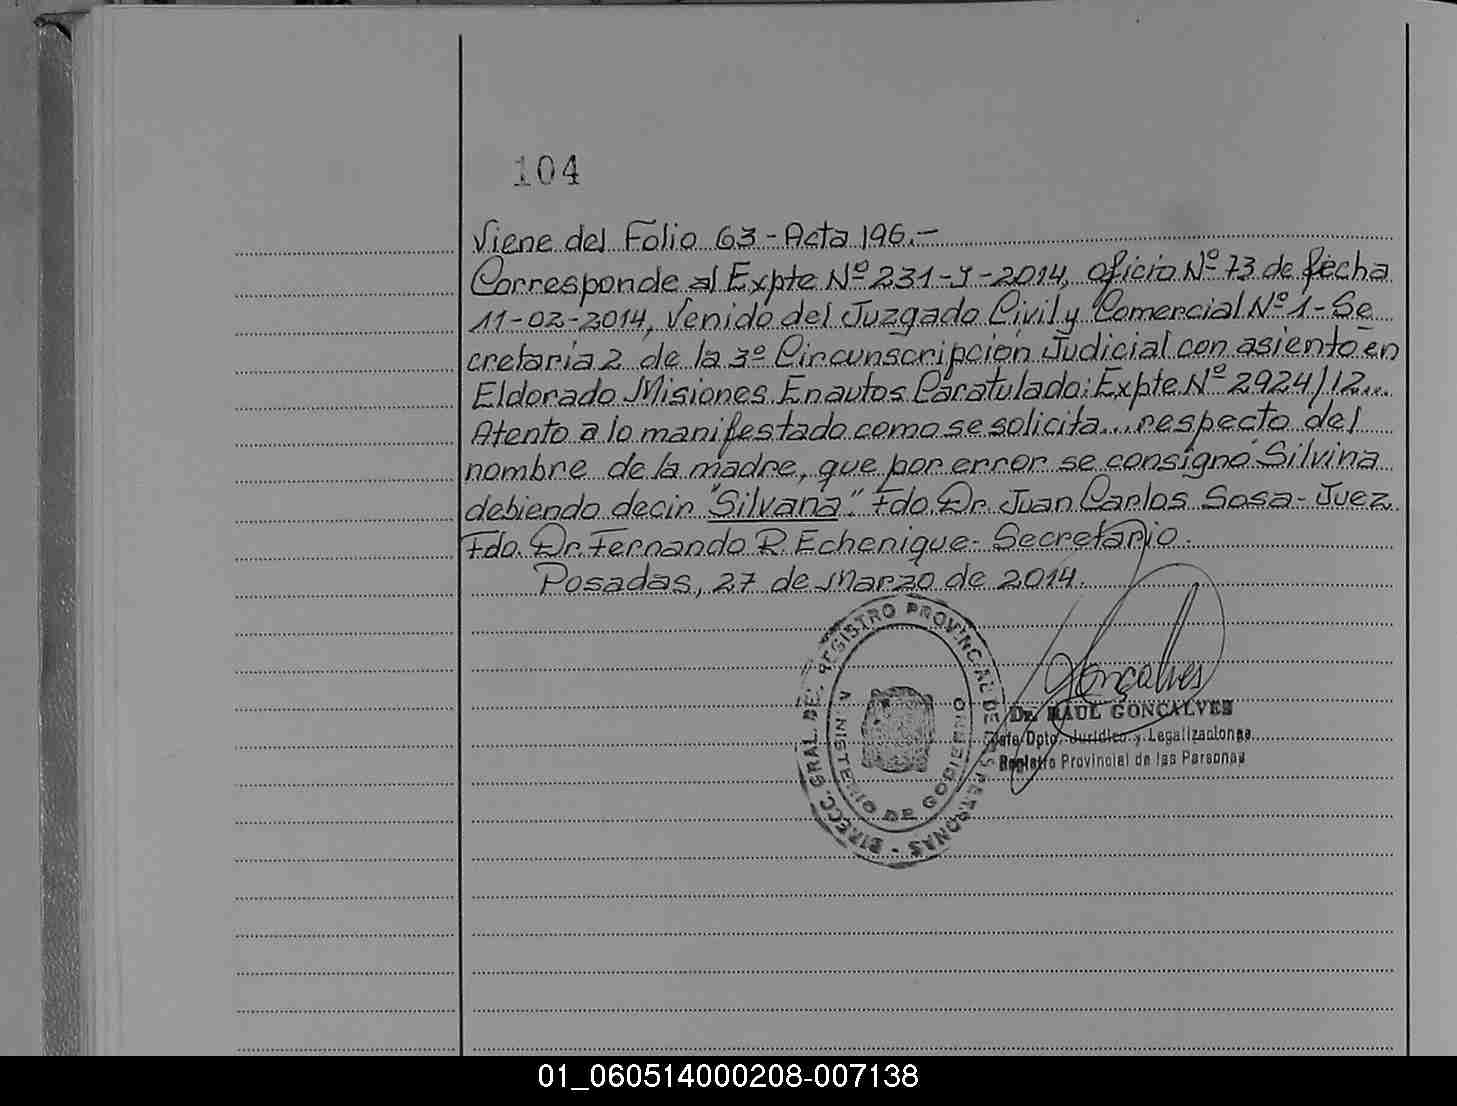 104
Viene del Folio 63 - Acta 196.-
Corresponde al Expte Nº 231-J-2014, Oficio Nº 73 de fecha
11-02-2014, Venido del Juzgado Civil y Comercial Nº 1 - Se
cretaria 2 de la 3º Circunscripción Judicial con asiento en
Eldorado Misiones. En autos Caratulado: Expte Nº 2924/12...
Atento a lo manifestado como se solicita... respecto del
nombre de la madre, que por error se consignó Silvina
debiendo decir "Silvana". Fdo. Dr. Juan Carlos Sosa - Juez.
Fdo. Dr. Fernando R. Echenique - Secretario.
Posadas, 27 de Marzo de 2014.
DIRECC. GRAL. DEL REGISTRO PROVINCIAL DE LAS PERSONAS -
MINISTERIO DE GOBIERNO
Gonçalves
Dr. RAUL GONCALVES
Jefe Dpto. Jurídico y Legalizaciones
Registro Provincial de las Personas
01_060514000208-007138